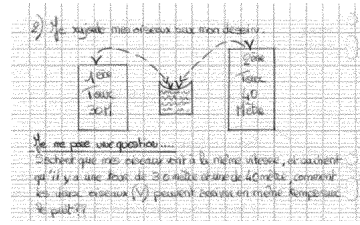 2) Je rajoute mes oiseaux sur mon dessin.
1ère
Tour
30M
2ème
Tour
40
Mètre
Je me pose une question....
Sachant que mes oiseaux vont à la même vitesse, et sachant
qu'il y a une tour de 30 mètre et une de 40 mètre, comment
les deux oiseaux (V) peuvent arriver en même temps sur
le puit??